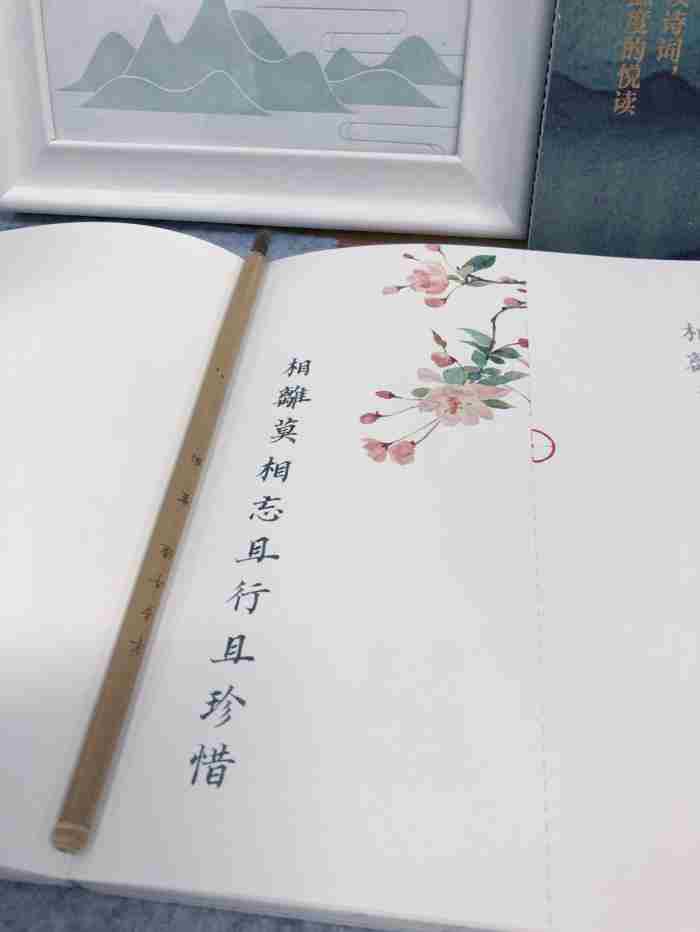 相離莫相忘且行且珍惜
诗词，
度的悦读
相